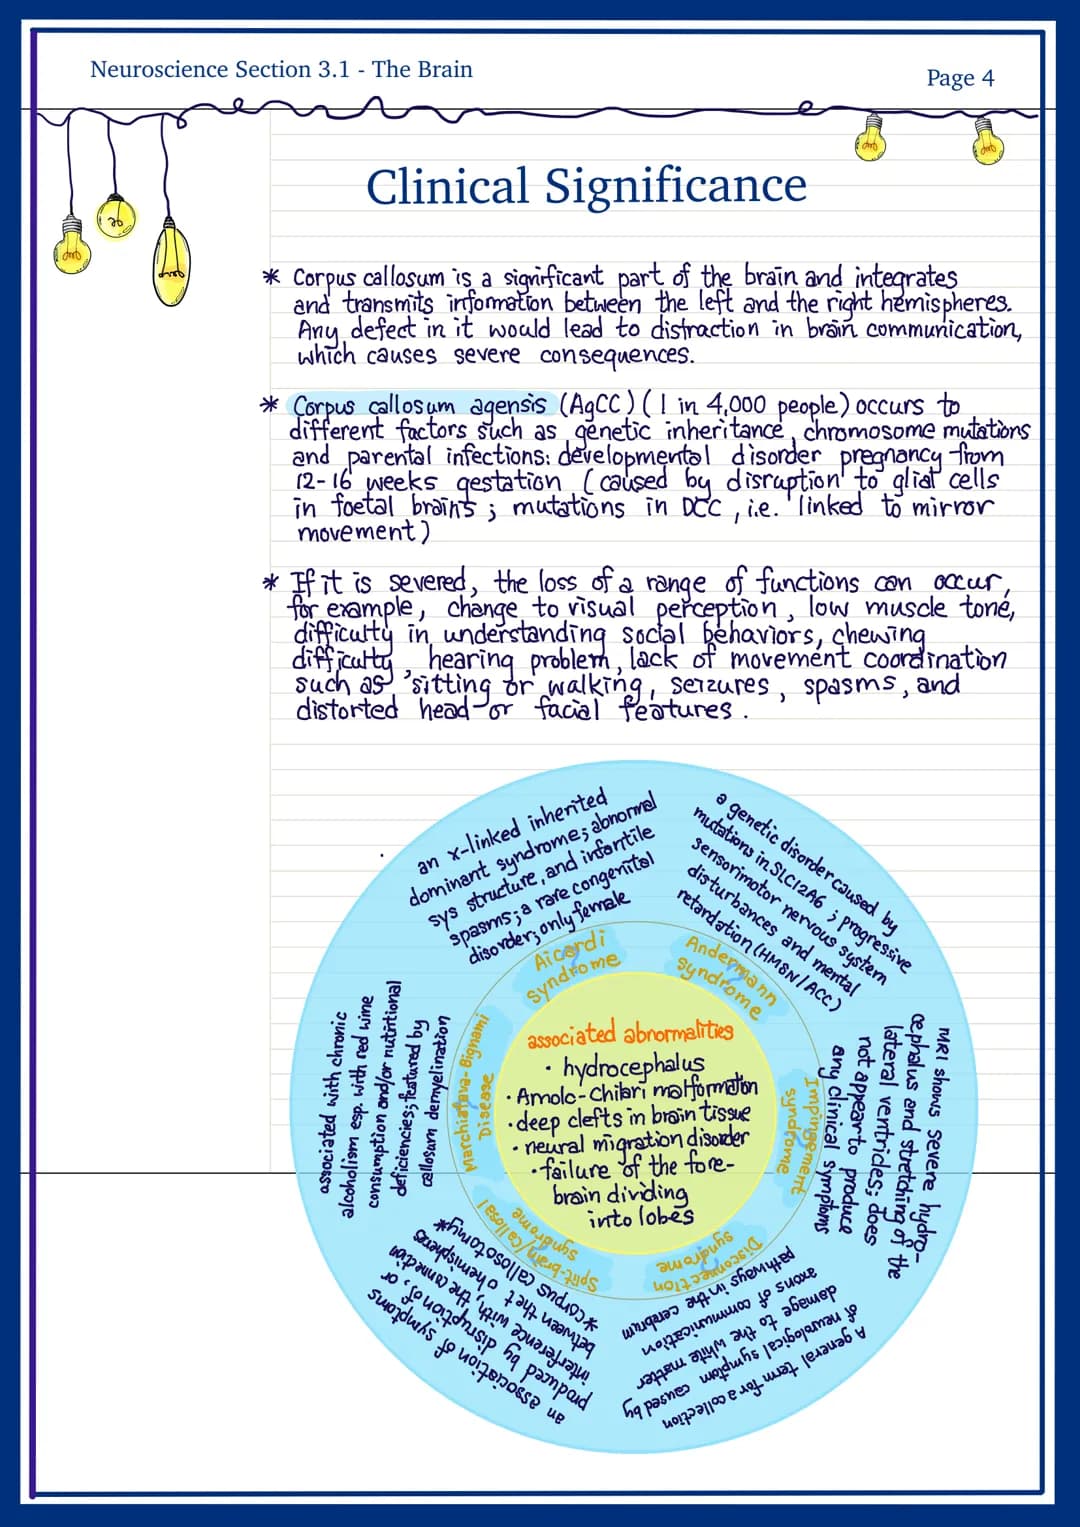 Neuroscience Section 3.1 - The Brain
Page 4
Clinical Significance
* Corpus callosum is a significant part of the brain and integrates
and transmits information between the left and the right hemispheres.
Any defect in it would lead to distraction in brain communication,
which causes severe consequences.
* Corpus callosum agensis (AgCC) (1 in 4,000 people) occurs to
different factors such as genetic inheritance, chromosome mutations
and parental infections: developmental disorder pregnancy from
12-16 weeks gestation (caused by disruption to glial cells
in foetal brains; mutations in DCC, i.e. linked to mirror
movement)
* If it is severed, the loss of a range of functions can occur,
for example, change to visual perception, low muscle tone,
difficulty in understanding social behaviors, chewing
difficulty, hearing problem, lack of movement coordination
such as sitting or walking, seizures, spasms, and
distorted head or facial features.
an x-linked inherited
dominant syndrome; abnormal
sys structure, and infantile
spasms; a rare congenital
disorder; only female
Aicardi
syndrome
a genetic disorder caused by
mutations in SLC12A6; progressive
sensorimotor nervous system
disturbances and mental
retardation (HMSN/ACC)
Andermann
syndrome
MRI shows severe hydro-
cephalus and stretching of the
lateral ventricles; does
not appear to produce
any clinical symptoms
Impingement
syndrome
A general term for a collection
of neurological symptom caused by
damage to the white matter
axons of communication
pathways in the cerebrum
Disconnection
syndrome
an association of symptoms
produced by disruption of, or
interference with, the connection
between thet o hemispheres
*corpus callosotomy*
Split-brain/Callosal
syndrome
associated with chronic
alcoholism esp. with red wime
consumption and/or nutritional
deficiencies; featured by
callosum demyelination
Marchiafava-Bignami
Disease
associated abnormalities
• hydrocephalus
• Arnolo-Chibri malformation
• deep clefts in brain tissue
• neural migration disorder
• failure of the fore-
brain dividing
into lobes